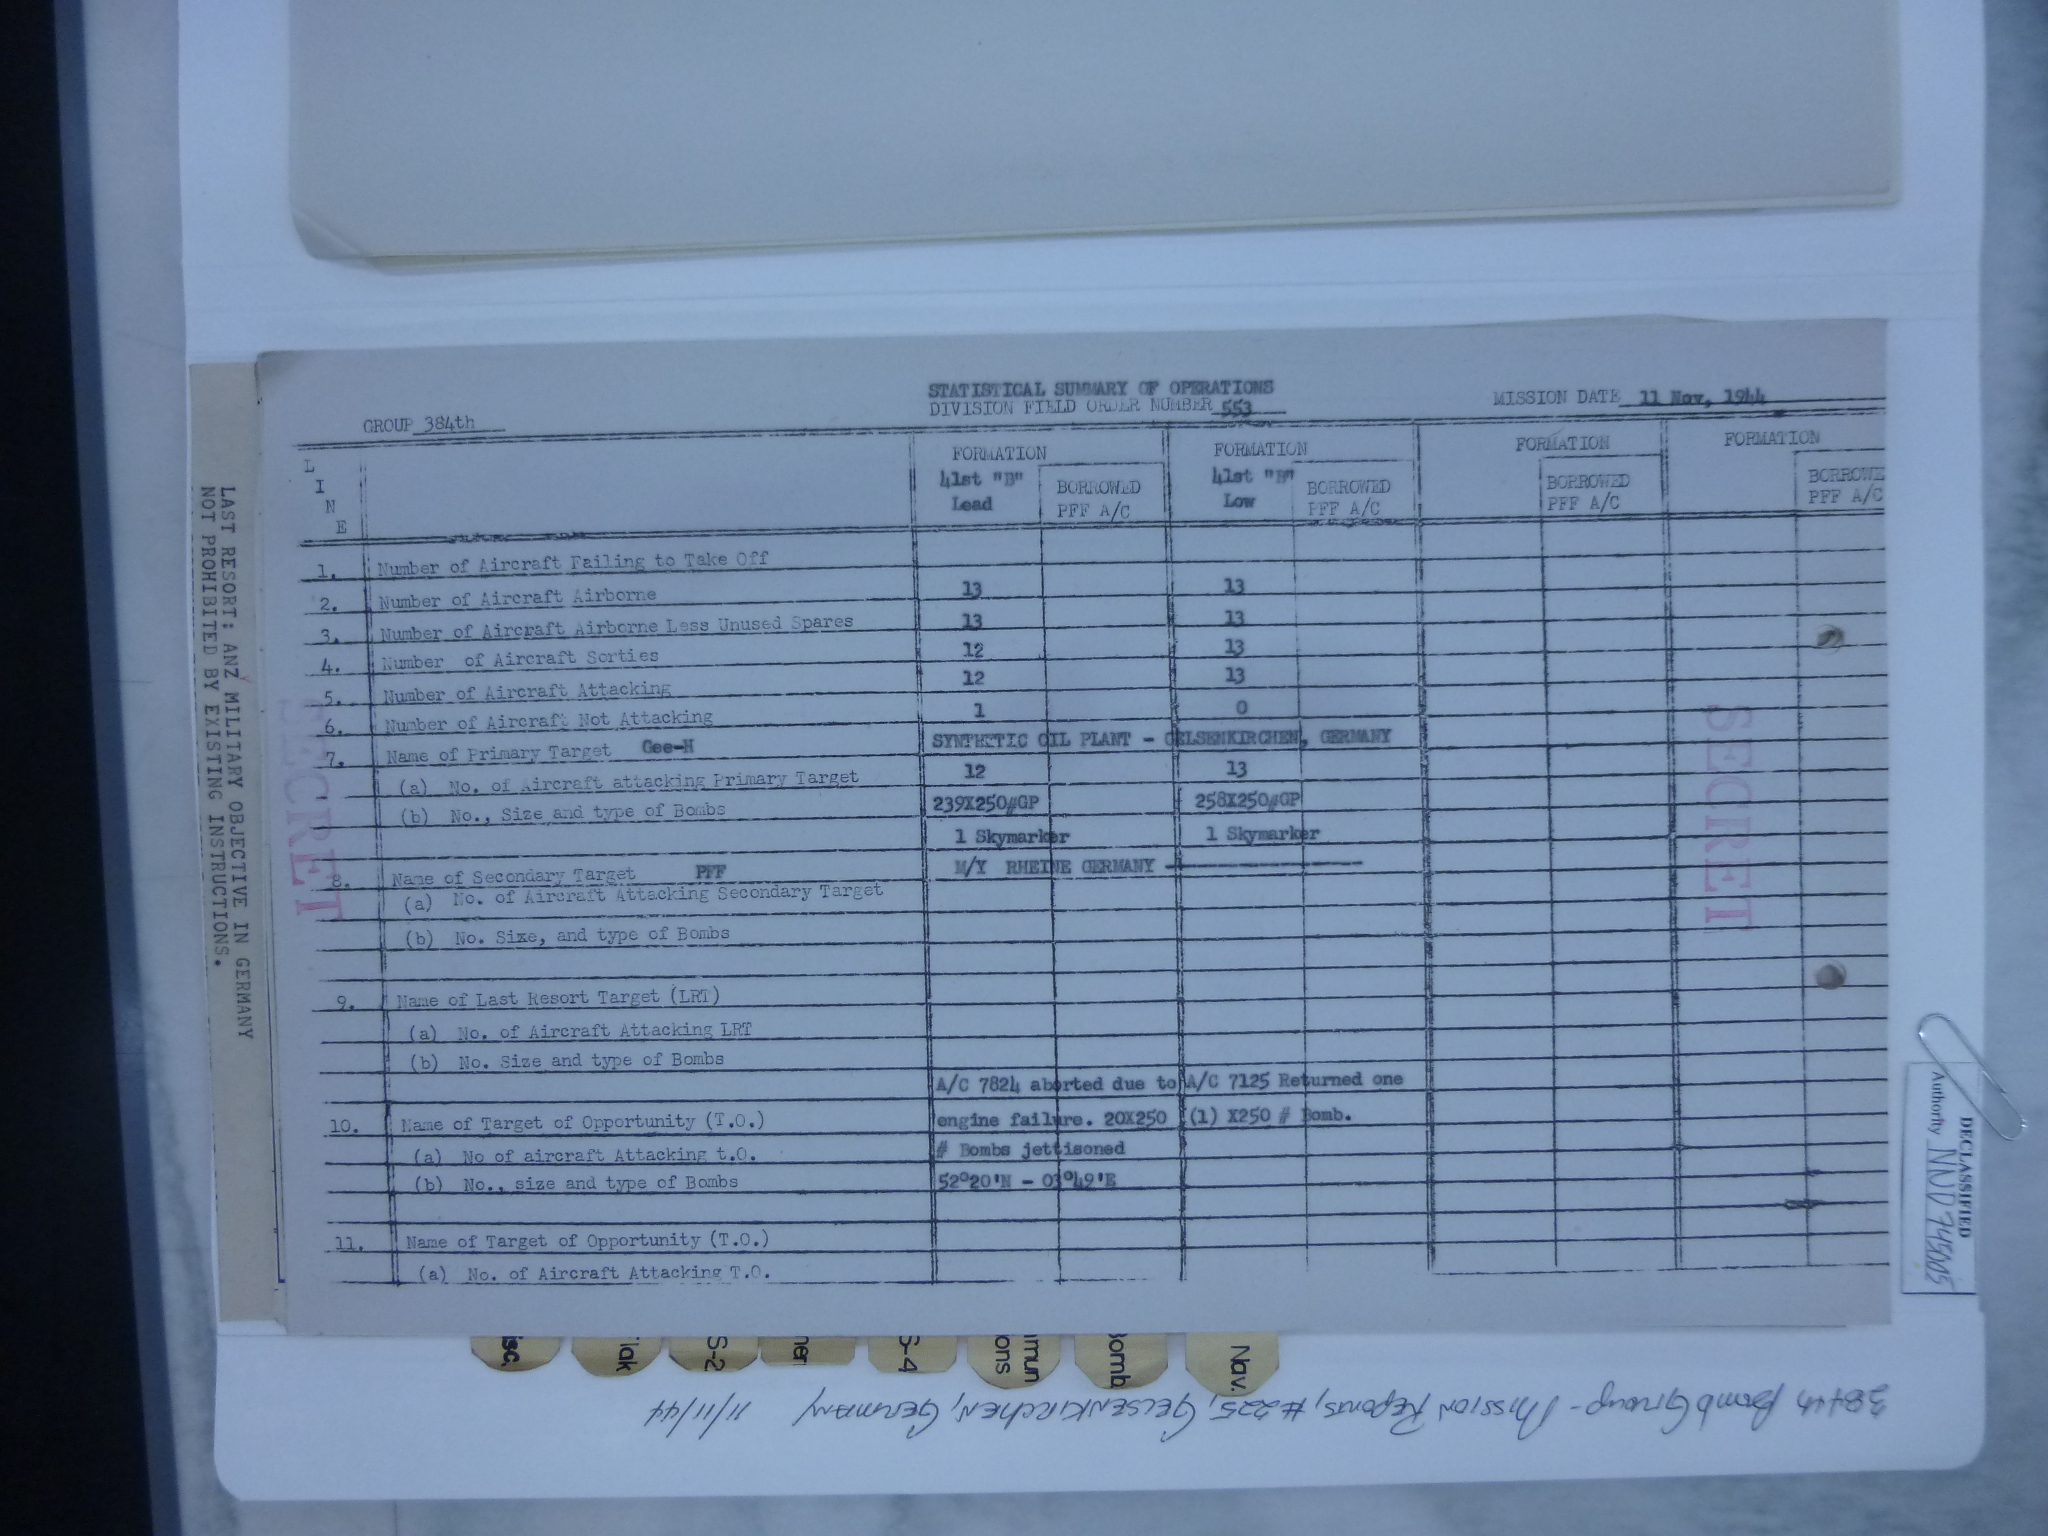 STATISTICAL SUMMARY OF OPERATIONS
DIVISION FIELD ORDER NUMBER 553
MISSION DATE 11 Nov, 1944
GROUP 384th
L I N E
FORMATION 41st "B" Lead BORROWED PFF A/C
FORMATION 41st "B" Low BORROWED PFF A/C
FORMATION BORROWED PFF A/C
FORMATION BORROWE PFF A/C
1. Number of Aircraft Failing to Take Off
2. Number of Aircraft Airborne 13 13
3. Number of Aircraft Airborne Less Unused Spares 13 13
4. Number of Aircraft Sorties 12 13
5. Number of Aircraft Attacking 12 13
6. Number of Aircraft Not Attacking 1 0
7. Name of Primary Target Gee-H SYNTHETIC OIL PLANT - GELSENKIRCHEN, GERMANY
(a) No. of Aircraft attacking Primary Target 12 13
(b) No., Size and type of Bombs 239X250#GP 258X250#GP
1 Skymarker 1 Skymarker
8. Name of Secondary Target PFF M/Y RHEINE GERMANY
(a) No. of Aircraft Attacking Secondary Target
(b) No. Size, and type of Bombs
9. Name of Last Resort Target (LRT)
(a) No. of Aircraft Attacking LRT
(b) No. Size and type of Bombs
A/C 7824 aborted due to A/C 7125 Returned one
10. Name of Target of Opportunity (T.O.) engine failure. 20X250 (1) X250 # Bomb.
(a) No of aircraft Attacking t.O. # Bombs jettisoned
(b) No., size and type of Bombs 52°20'N - 03°49'E
11. Name of Target of Opportunity (T.O.)
(a) No. of Aircraft Attacking T.O.
SECRET
SECRET
LAST RESORT: ANZ MILITARY OBJECTIVE IN GERMANY
NOT PROHIBITED BY EXISTING INSTRUCTIONS.
DECLASSIFIED
Authority NND 745005
isc.
lak
S-2
her
S-4
mmun
ons
Bomb
Nav.
384th Bomb Group - Mission Reports, #225, Gelsenkirchen, Germany 11/11/44